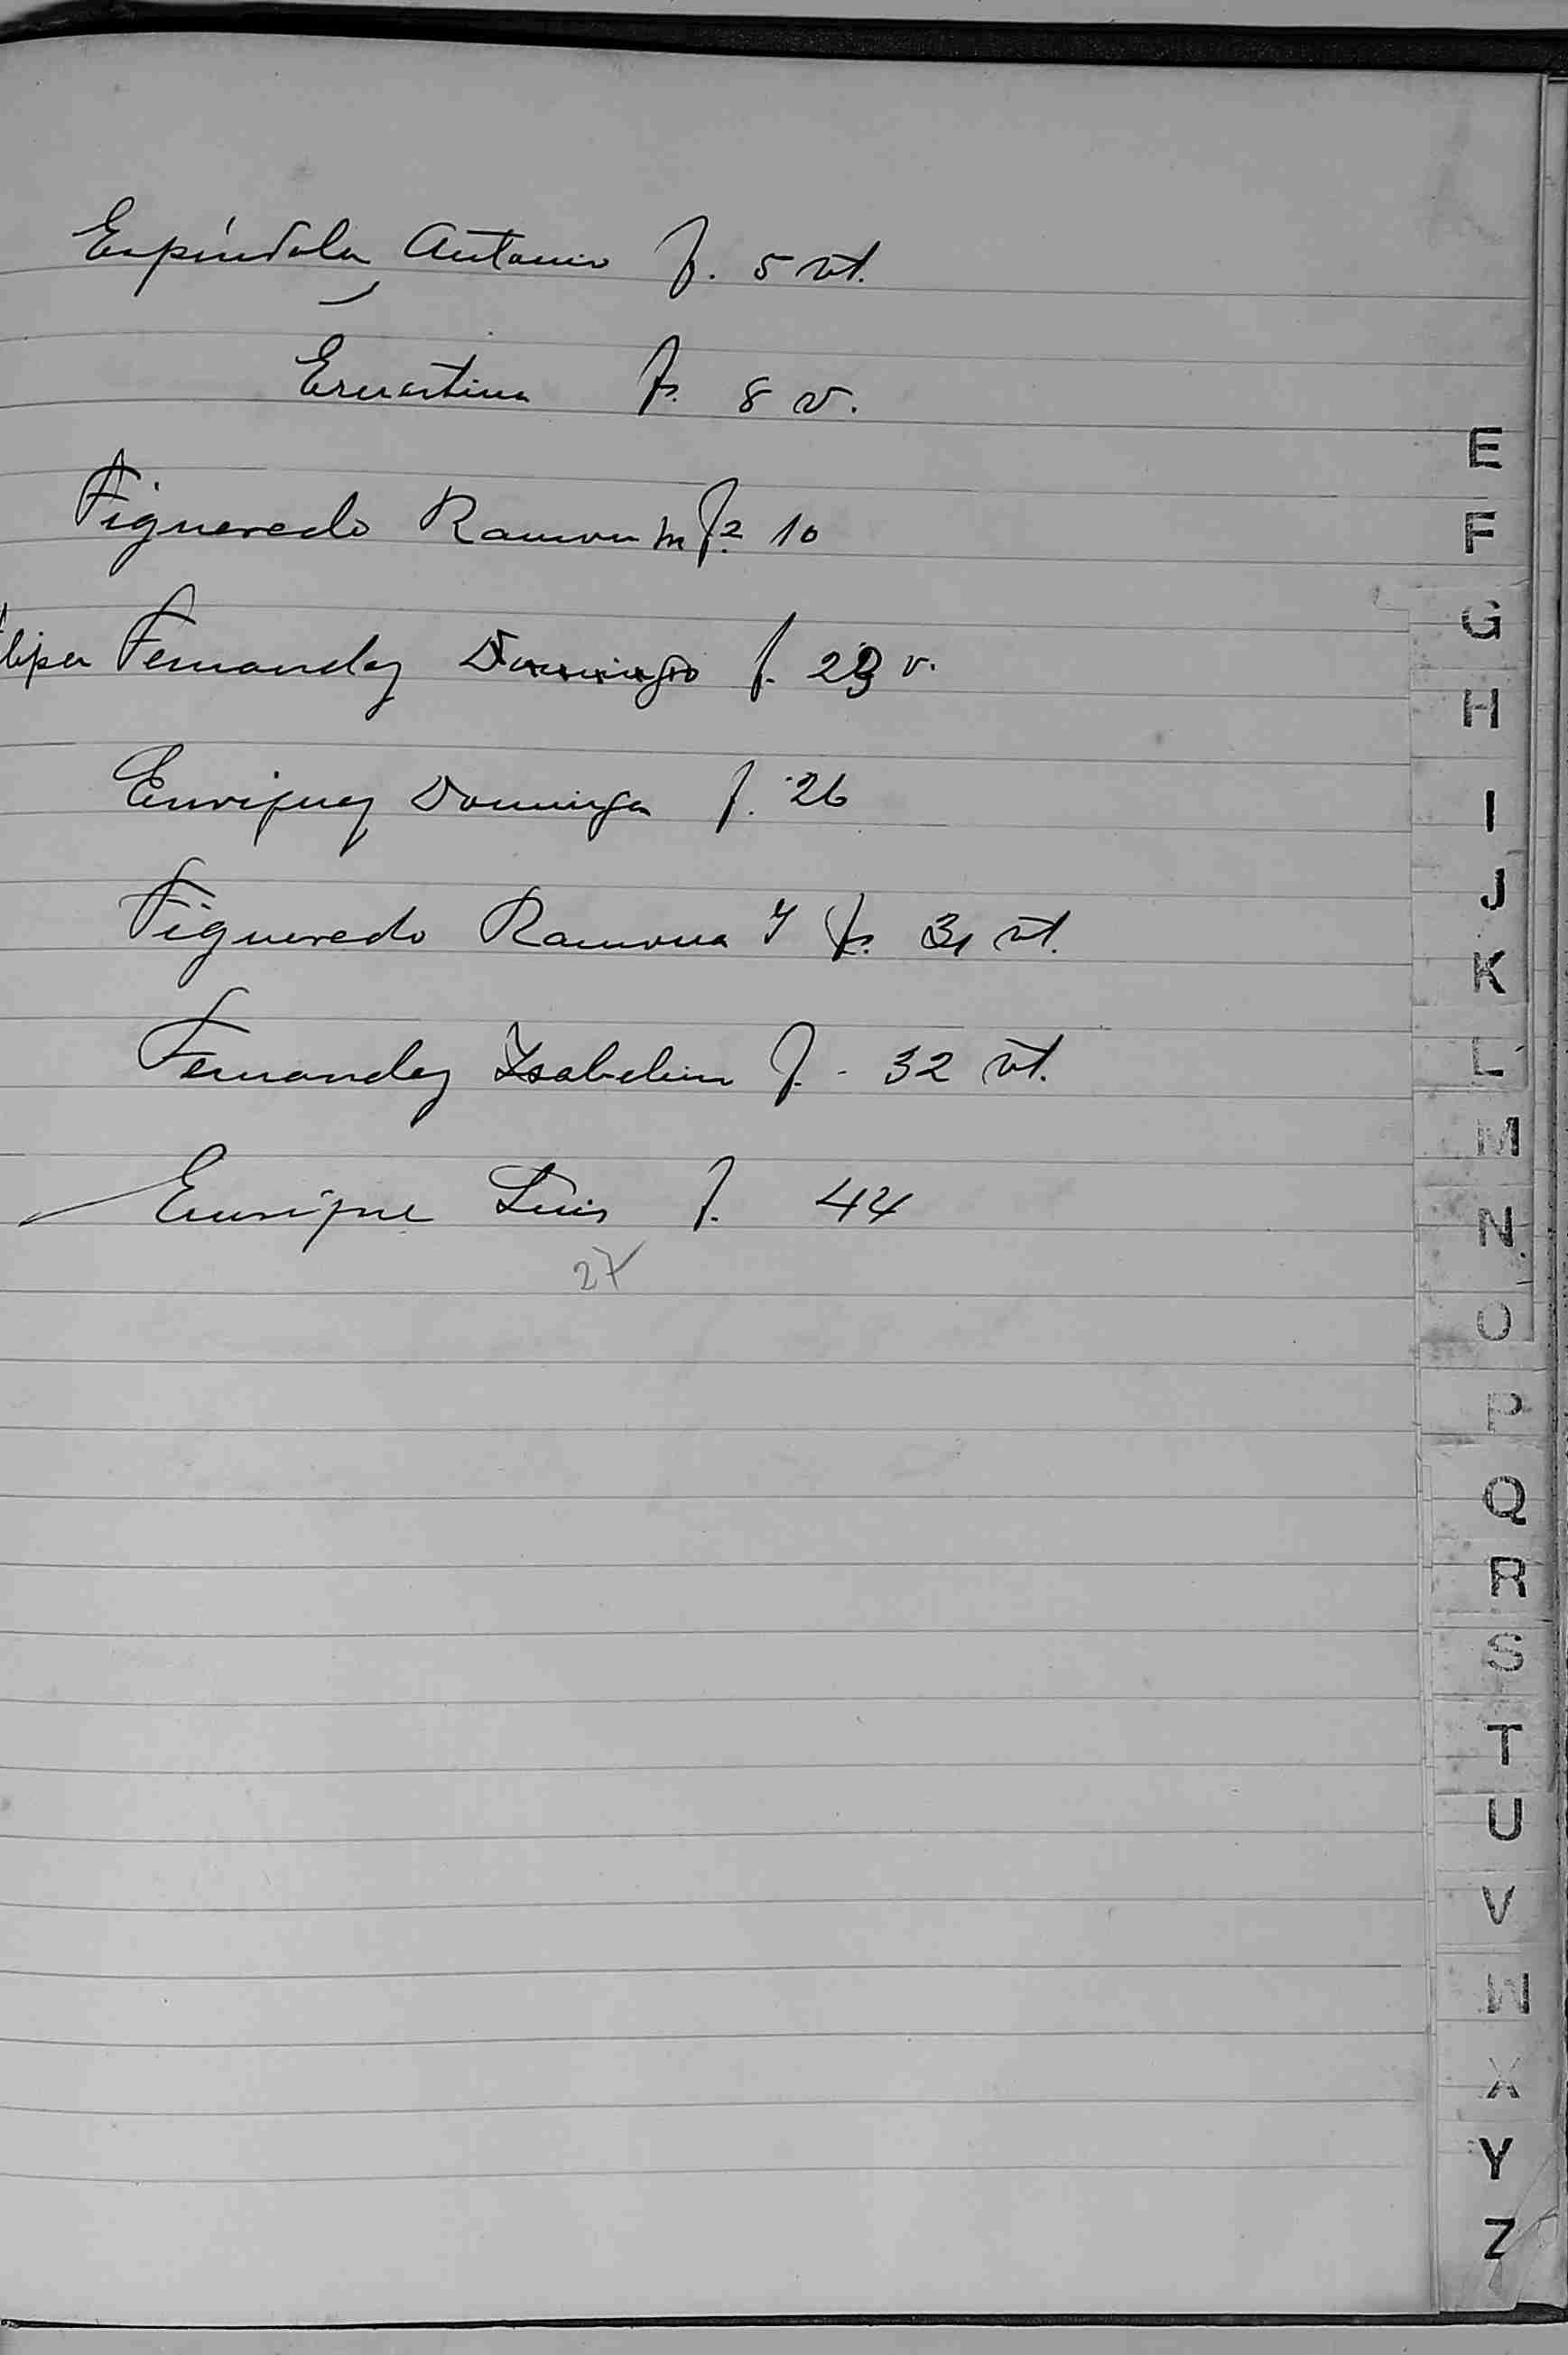 Espíndola Antonio f. 5 vt.
Ernestina fs. 8 v.
Figueredo Ramon M fs. 10
Fernandez Domingo f. 23 v.
Enriquez Dominga f. 26
Figueredo Ramona Y fs. 31 vt.
Fernandez Ysabelina f. - 32 vt.
Enrique Luis f. 44
27
E
F
G
H
I
J
K
L
M
N
O
P
Q
R
S
T
U
V
W
X
Y
Z